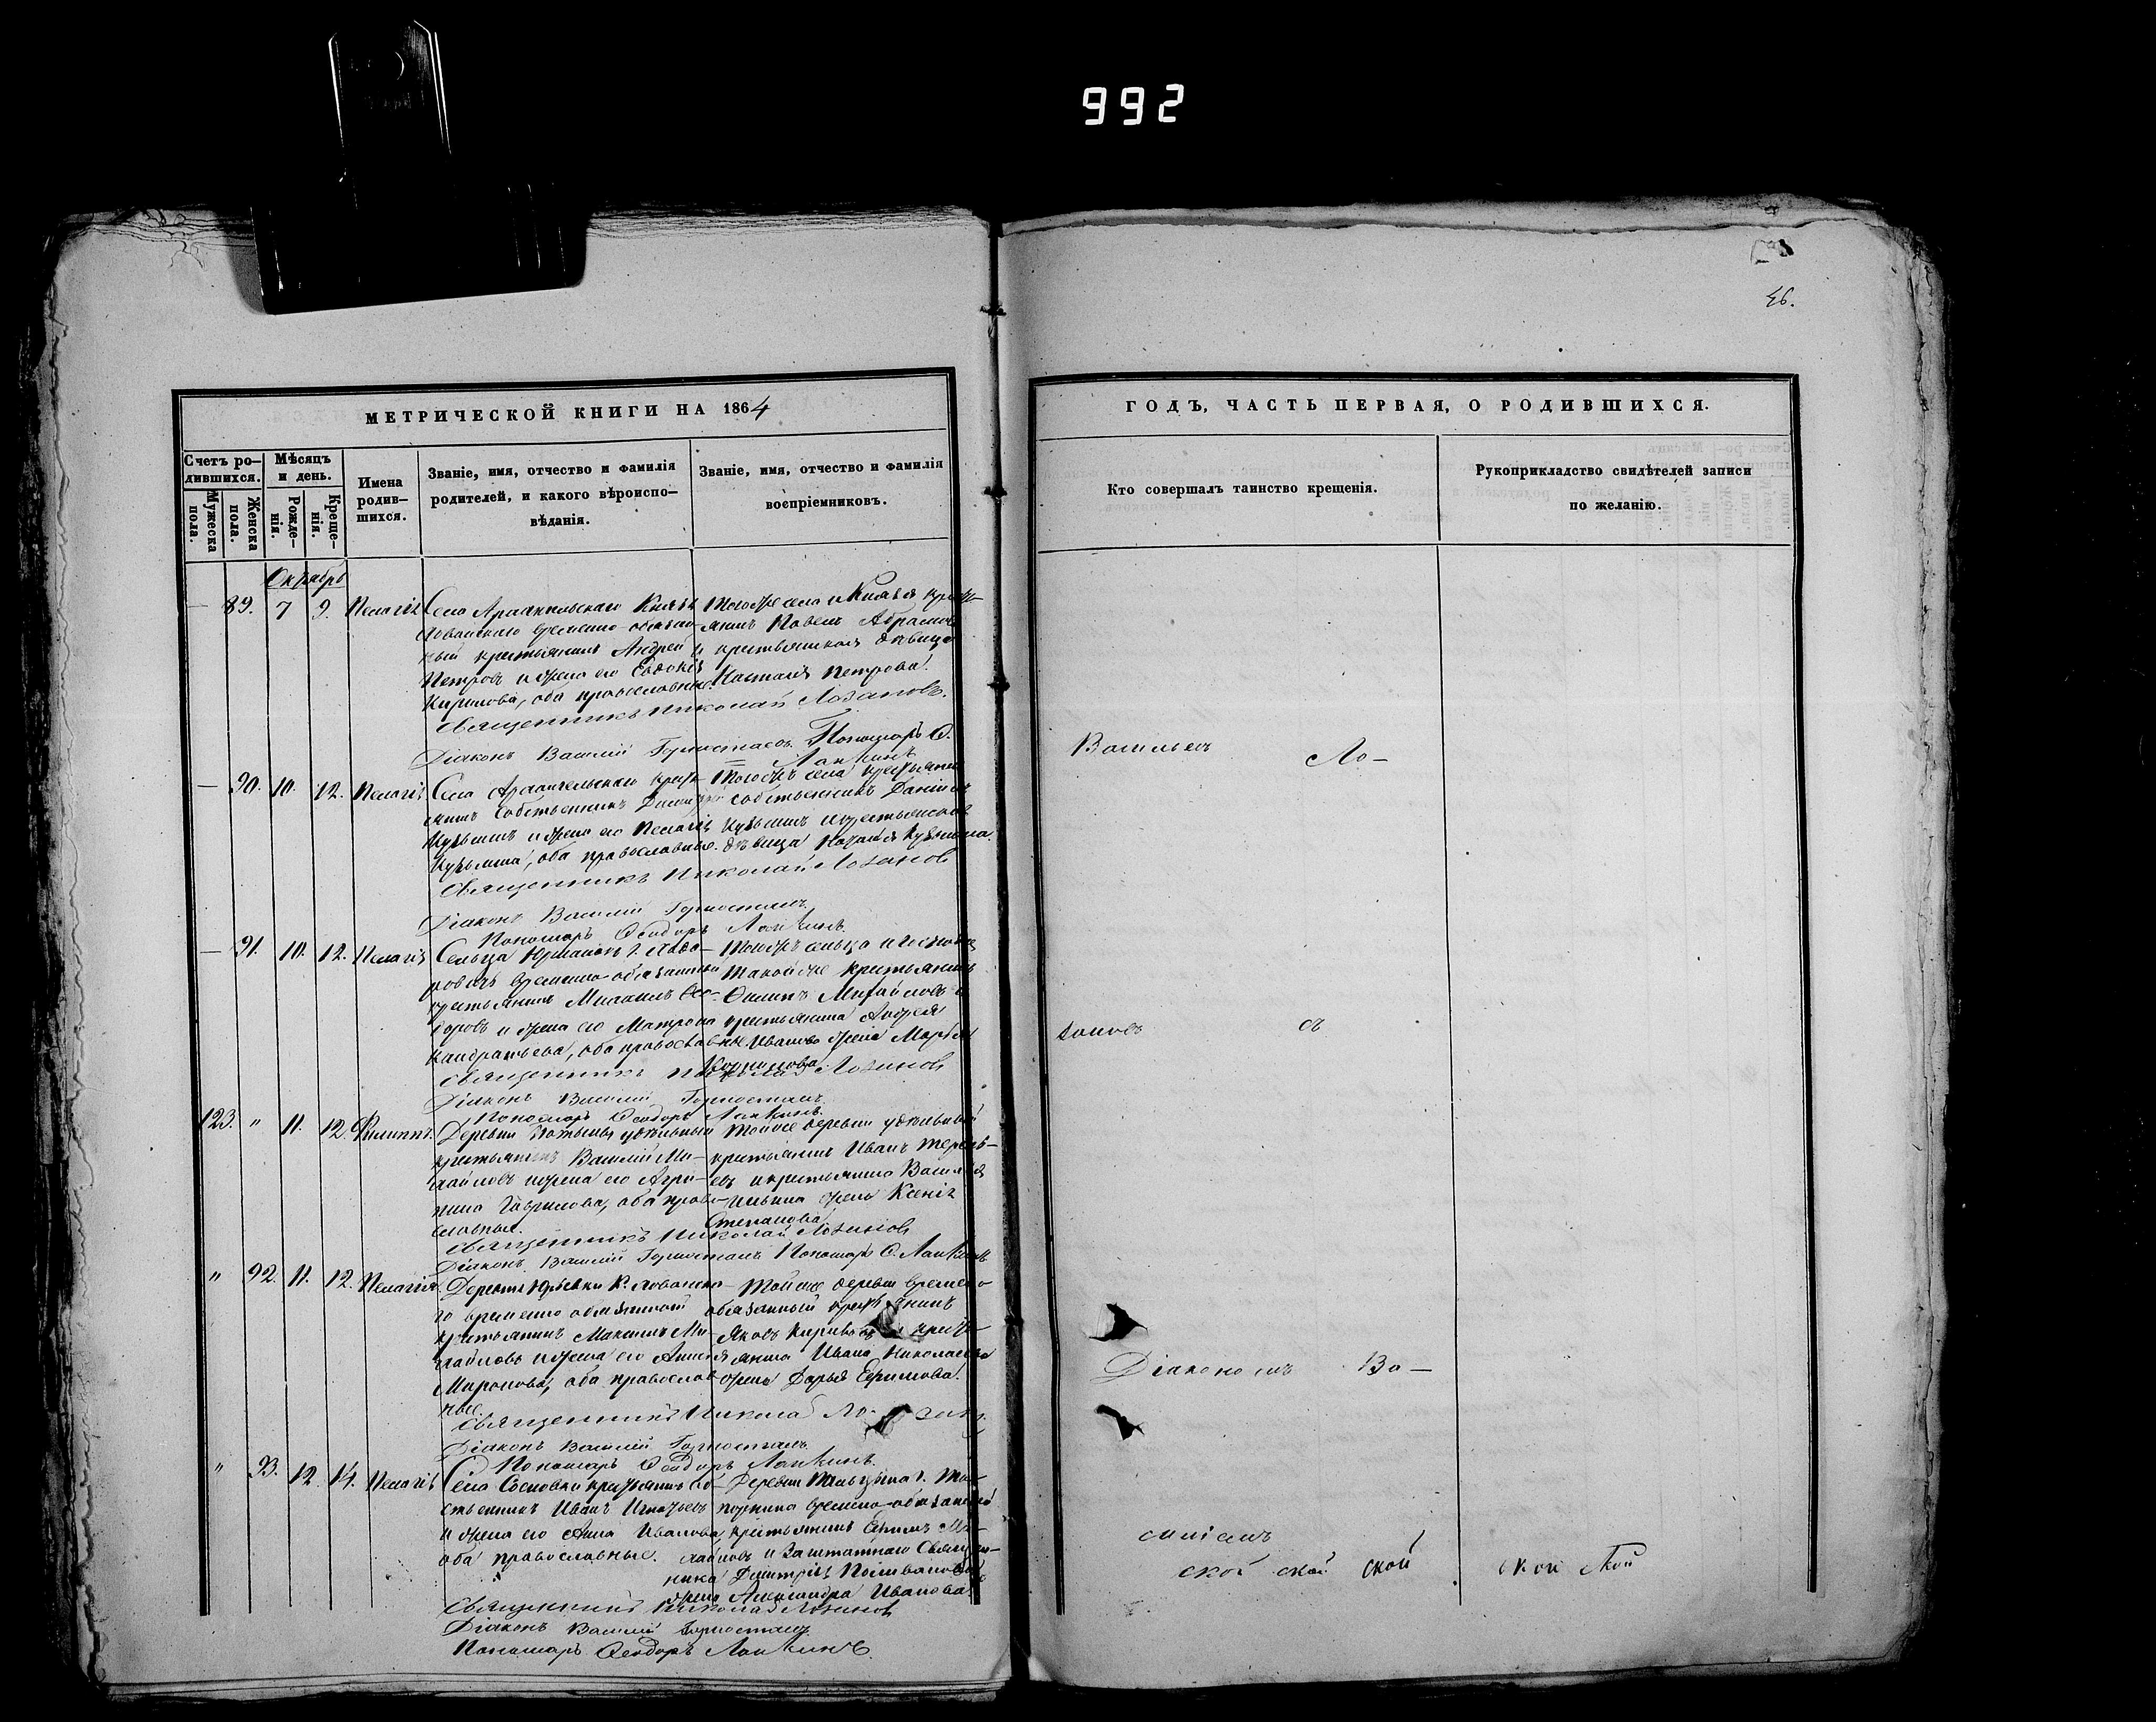 992
36.
МЕТРИЧЕСКОЙ КНИГИ НА 1864
ГОДЪ, ЧАСТЬ ПЕРВАЯ, О РОДИВШИХСЯ.
Счетъ ро-
дившихся.
Мужеска пола.
Женска пола.
Мѣсяцъ
и день.
Рожде-
нія.
Креще-
нія.
Имена
родив-
шихся.
Званіе, имя, отчество и фамилія
родителей, и какого вѣроиспо-
вѣданія.
Званіе, имя, отчество и фамилія
воспріемниковъ.
Кто совершалъ таинство крещенія.
Рукоприкладство свидѣтелей записи
по желанію.
Октябрь
— 89. 7 9. Пелагія
Села Архангельскаго Князя
временно-обязан-
ный крестьянинъ Андрей
Петровъ и жена его Евдокія
Кирилова, оба православные.
Тогоже села и Князя крестъ-
янинъ Павелъ Абрамовъ
и крестьянская дѣвица
Наталія Петрова.
Священникъ Николай Лозановъ.
Діаконъ Василій Горностаевъ. Пономарь Ѳ.
Лапкинъ
— 90. 10. 12. Пелагія
Села Архангельскаго крестъ-
янинъ собственникъ Димитрій
Кузьминъ и жена его Пелагія
Кузьмина, оба православные.
Тогожъ села крестьянинъ
собственникъ Даніилъ
Кузьминъ и крестьянская
дѣвица Наталія Кузьмина.
Священникъ Николай Лозановъ
Діаконъ Василій Горностаевъ
Пономарь Ѳеодоръ Лапкинъ.
— 91. 10. 12. Пелагія
Сельца
временно-обязанный
крестьянинъ Михаилъ Ѳео-
доровъ и жена его Матрона
Кандратьева, оба православные
Тогожъ сельца и госпожи
такойже крестьянинъ
Филипъ Михайловъ и
крестьянина Андрея
Иванова жена Марѳа
Священникъ Николай Лозановъ
Діаконъ Василій Горностаевъ
Пономарь Ѳеодоръ Лапкинъ.
123. " 11. 12. Филиппъ.
Деревни удѣльный
крестьянинъ Василій Ми-
хайловъ и жена его Агри-
пина Гаврилова, оба право-
славные.
Тойже деревни удѣльный
крестьянинъ Иванъ Терентъ-
евъ и крестьянина Василія
Ильина жена Ксенія
Степанова.
Священникъ Николай Лозановъ
Діаконъ Василій Горностаевъ Пономарь Ѳ. Лапкинъ
" 92. 11. 12. Пелагія.
Деревни Юрьевки К.
го временно обязанный
крестьянинъ Максимъ Ми-
хайловъ и жена его Анна
Миронова, оба православ-
ные.
Тойже деревни временно-
обязанный крестьянинъ
Яковъ Кириловъ и кресть-
янина Ивана Николаева
жена Дарья Ефимова.
Священникъ Николай Лозановъ.
Діаконъ Василій Горностаевъ
Пономарь Ѳеодоръ Лапкинъ.
" 93. 12 14. Пелагія
Села Сосновки крестьянинъ соб-
ственникъ Иванъ Игнатьевъ
и жена его Анна Иванова,
оба православные.
Деревни
временно-обязанный
крестьянинъ Ефимъ Ми-
хайловъ и Заштатнаго Священ-
ника Димитрія Поливанова
жена Александра Иванова.
Священникъ Николай Лозановъ
Діаконъ Василій Горностаевъ
Пономарь Ѳеодоръ Лапкинъ.
Ло-
съ
Діакономъ Ва-
ской ской ской
ской